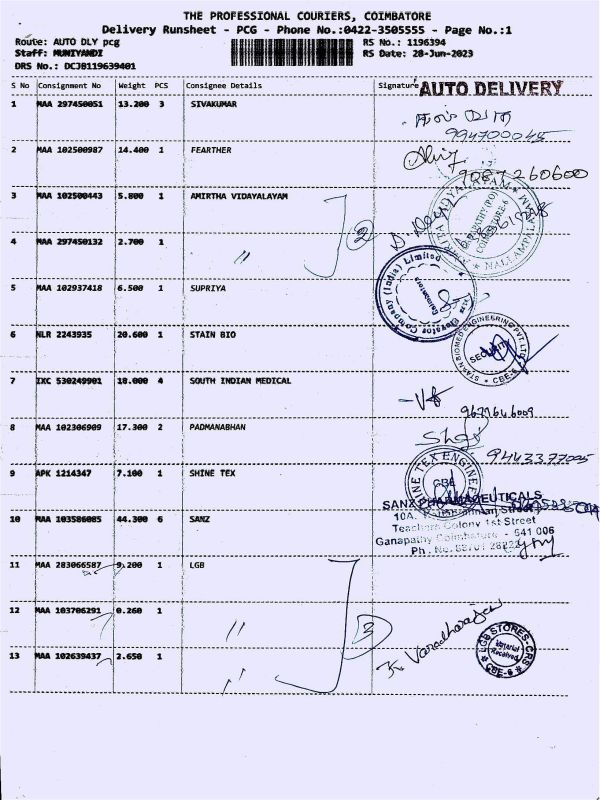 THE PROFESSIONAL COURIERS, COIMBATORE
Delivery Runsheet - PCG - Phone No.:0422-3505555 - Page No.:1
Route: AUTO DLY pcg RS No.: 1196394
Staff: MUNIYANDI RS Date: 28-Jun-2023
DRS No.: DCJB119639401
S No Consignment No Weight PCS Consignee Details Signature AUTO DELIVERY
1 MAA 297450051 13.200 3 SIVAKUMAR
994700045
2 MAA 102500987 14.400 1 FEARTHER
9087260600
3 MAA 102500443 5.800 1 AMIRTHA VIDAYALAYAM
2
4 MAA 297450132 2.700 1 "
5 MAA 102937418 6.500 1 SUPRIYA
6 NLR 2243935 20.600 1 STAIN BIO
STAAN BIOMED ENGINEERING PVT. LTD.
SECURITY
CBE-6
7 IXC 530249901 18.000 4 SOUTH INDIAN MEDICAL
8 MAA 102306909 17.300 2 PADMANABHAN
9443377005
9 APK 1214347 7.100 1 SHINE TEX
SHINE TEX ENGINEER
CBE
SANZ PHARMACEUTICALS
10 MAA 103586085 44.300 6 SANZ
Teachers Colony 1st Street
Ganapathy Coimbatore - 641 006
11 MAA 283066587 9.200 1 LGB
12 MAA 103706291 0.260 1 "
3
K. Varadharajan
LGB STORES-CRS
Material
Received
CBE-6
13 MAA 102639437 2.650 1 "